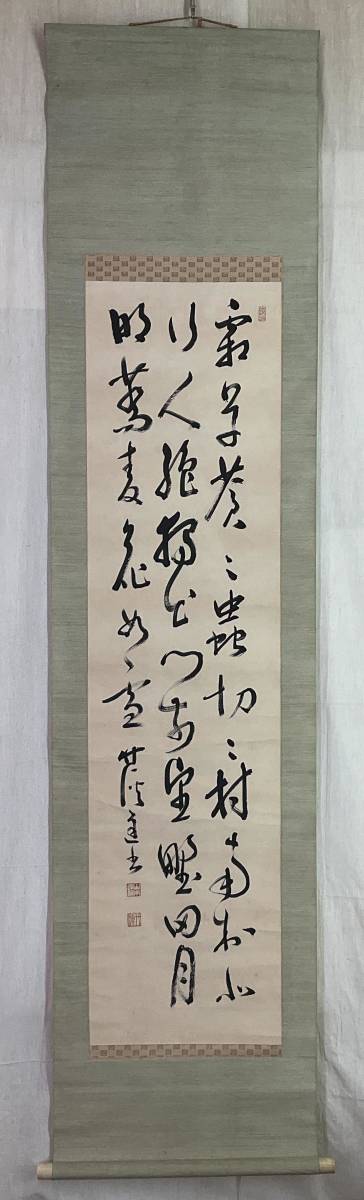 霜草蒼々蟲切々村南村北
行人絶獨出門前望野田月
明蕎麦花如雪